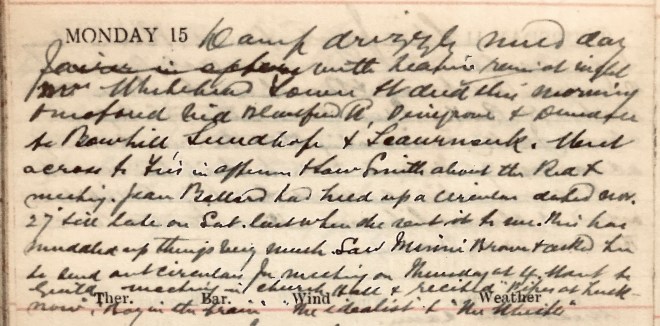 MONDAY 15 Damp drizzly mild day
Fairer in aftern with heavier rain at night
Mrs Whitehead Tower St died this morning
& Blandford &
to Bowhill, Sundhope & . Went
across to in aftern & saw Smith about the Red X
meeting. Jean Ballard had held up a circular dated Nov.
27 till late on Sat. last when she sent it to me. This has
muddled up things very much. Saw Minnie Brown & asked her
to send out circulars for meeting on Thursday at 4. Went to
Guild meeting in Church Hall & recited "Pipes at Luck-
Ther. Bar. Wind Weather
now", "Boy in the train" "The idealist" & "The Whistle"